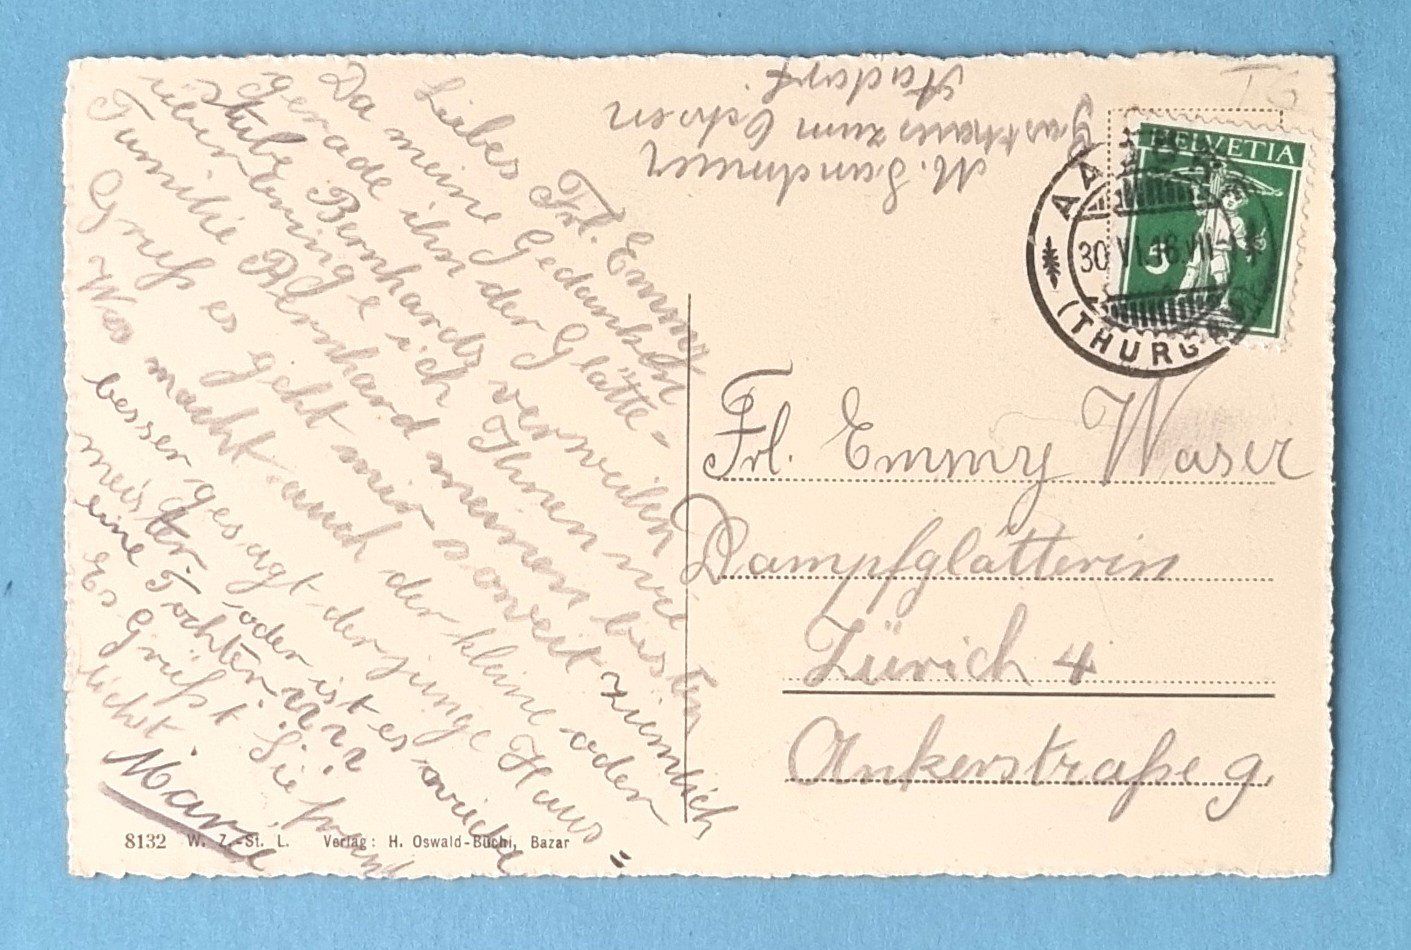 Liebes Frl. Emmy
Da meine Gedanken
gerade in der Glätte-
stube Bernhards verweilen
überbringe ich Ihnen wie
Familie Bernhard meinen besten
Gruss es geht mir soweit ziemlich
Was macht auch der kleine oder
besser gesagt der junge Haus-
meister oder ist es wieder
eine Tochter
Es Grüsst Sie freund
lichst
Marie
M. Sandmeier
Gasthaus zum Ochsen
Aadorf
TG
HELVETIA
5
AADORF
30.VI.16.VII-
(THURGAU)
Frl. Emmy Waser
Dampfglätterin
Zürich 4
Ankerstraße 9.
8132 W. Z.-St. L. Verlag: H. Oswald-Büchi, Bazar